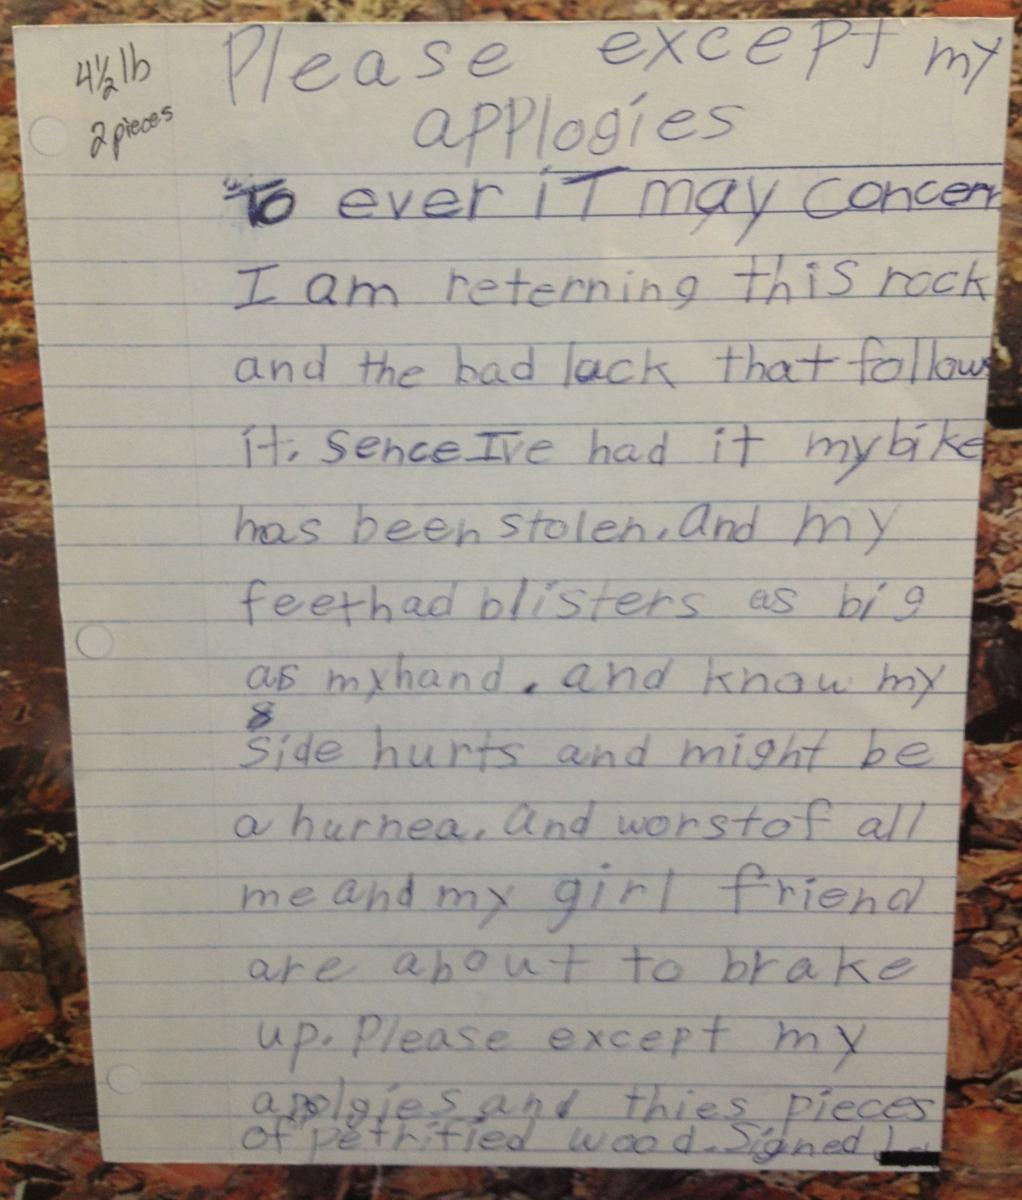 4½ lb
2 pieces
Please except my
applogies
To ever iT may concern
I am reterning this rock
and the bad lack that follows
it. Sence I've had it my bike
has been stolen. And my
feet had blisters as big
as my hand. and know my
side hurts and might be
a hurnea. And worst of all
me and my girl friend
are about to brake
up. Please except my
apolgies and thies pieces
of petrified wood. Signed